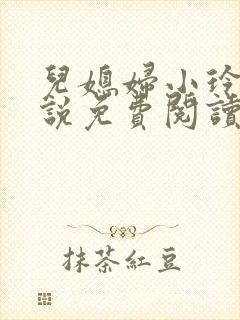 兒媳婦小玲
說免費閱讀
抹茶紅豆